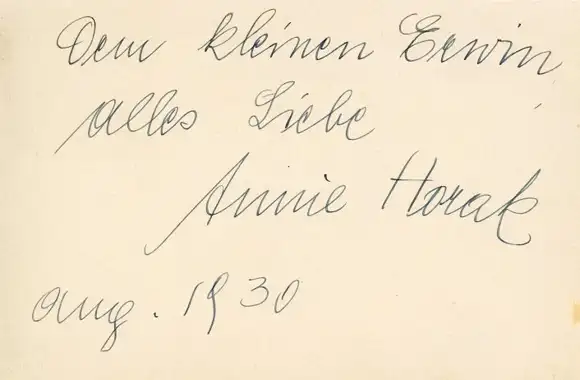 Dem kleinen Erwin
alles Liebe
Annie Horak
aug. 1930